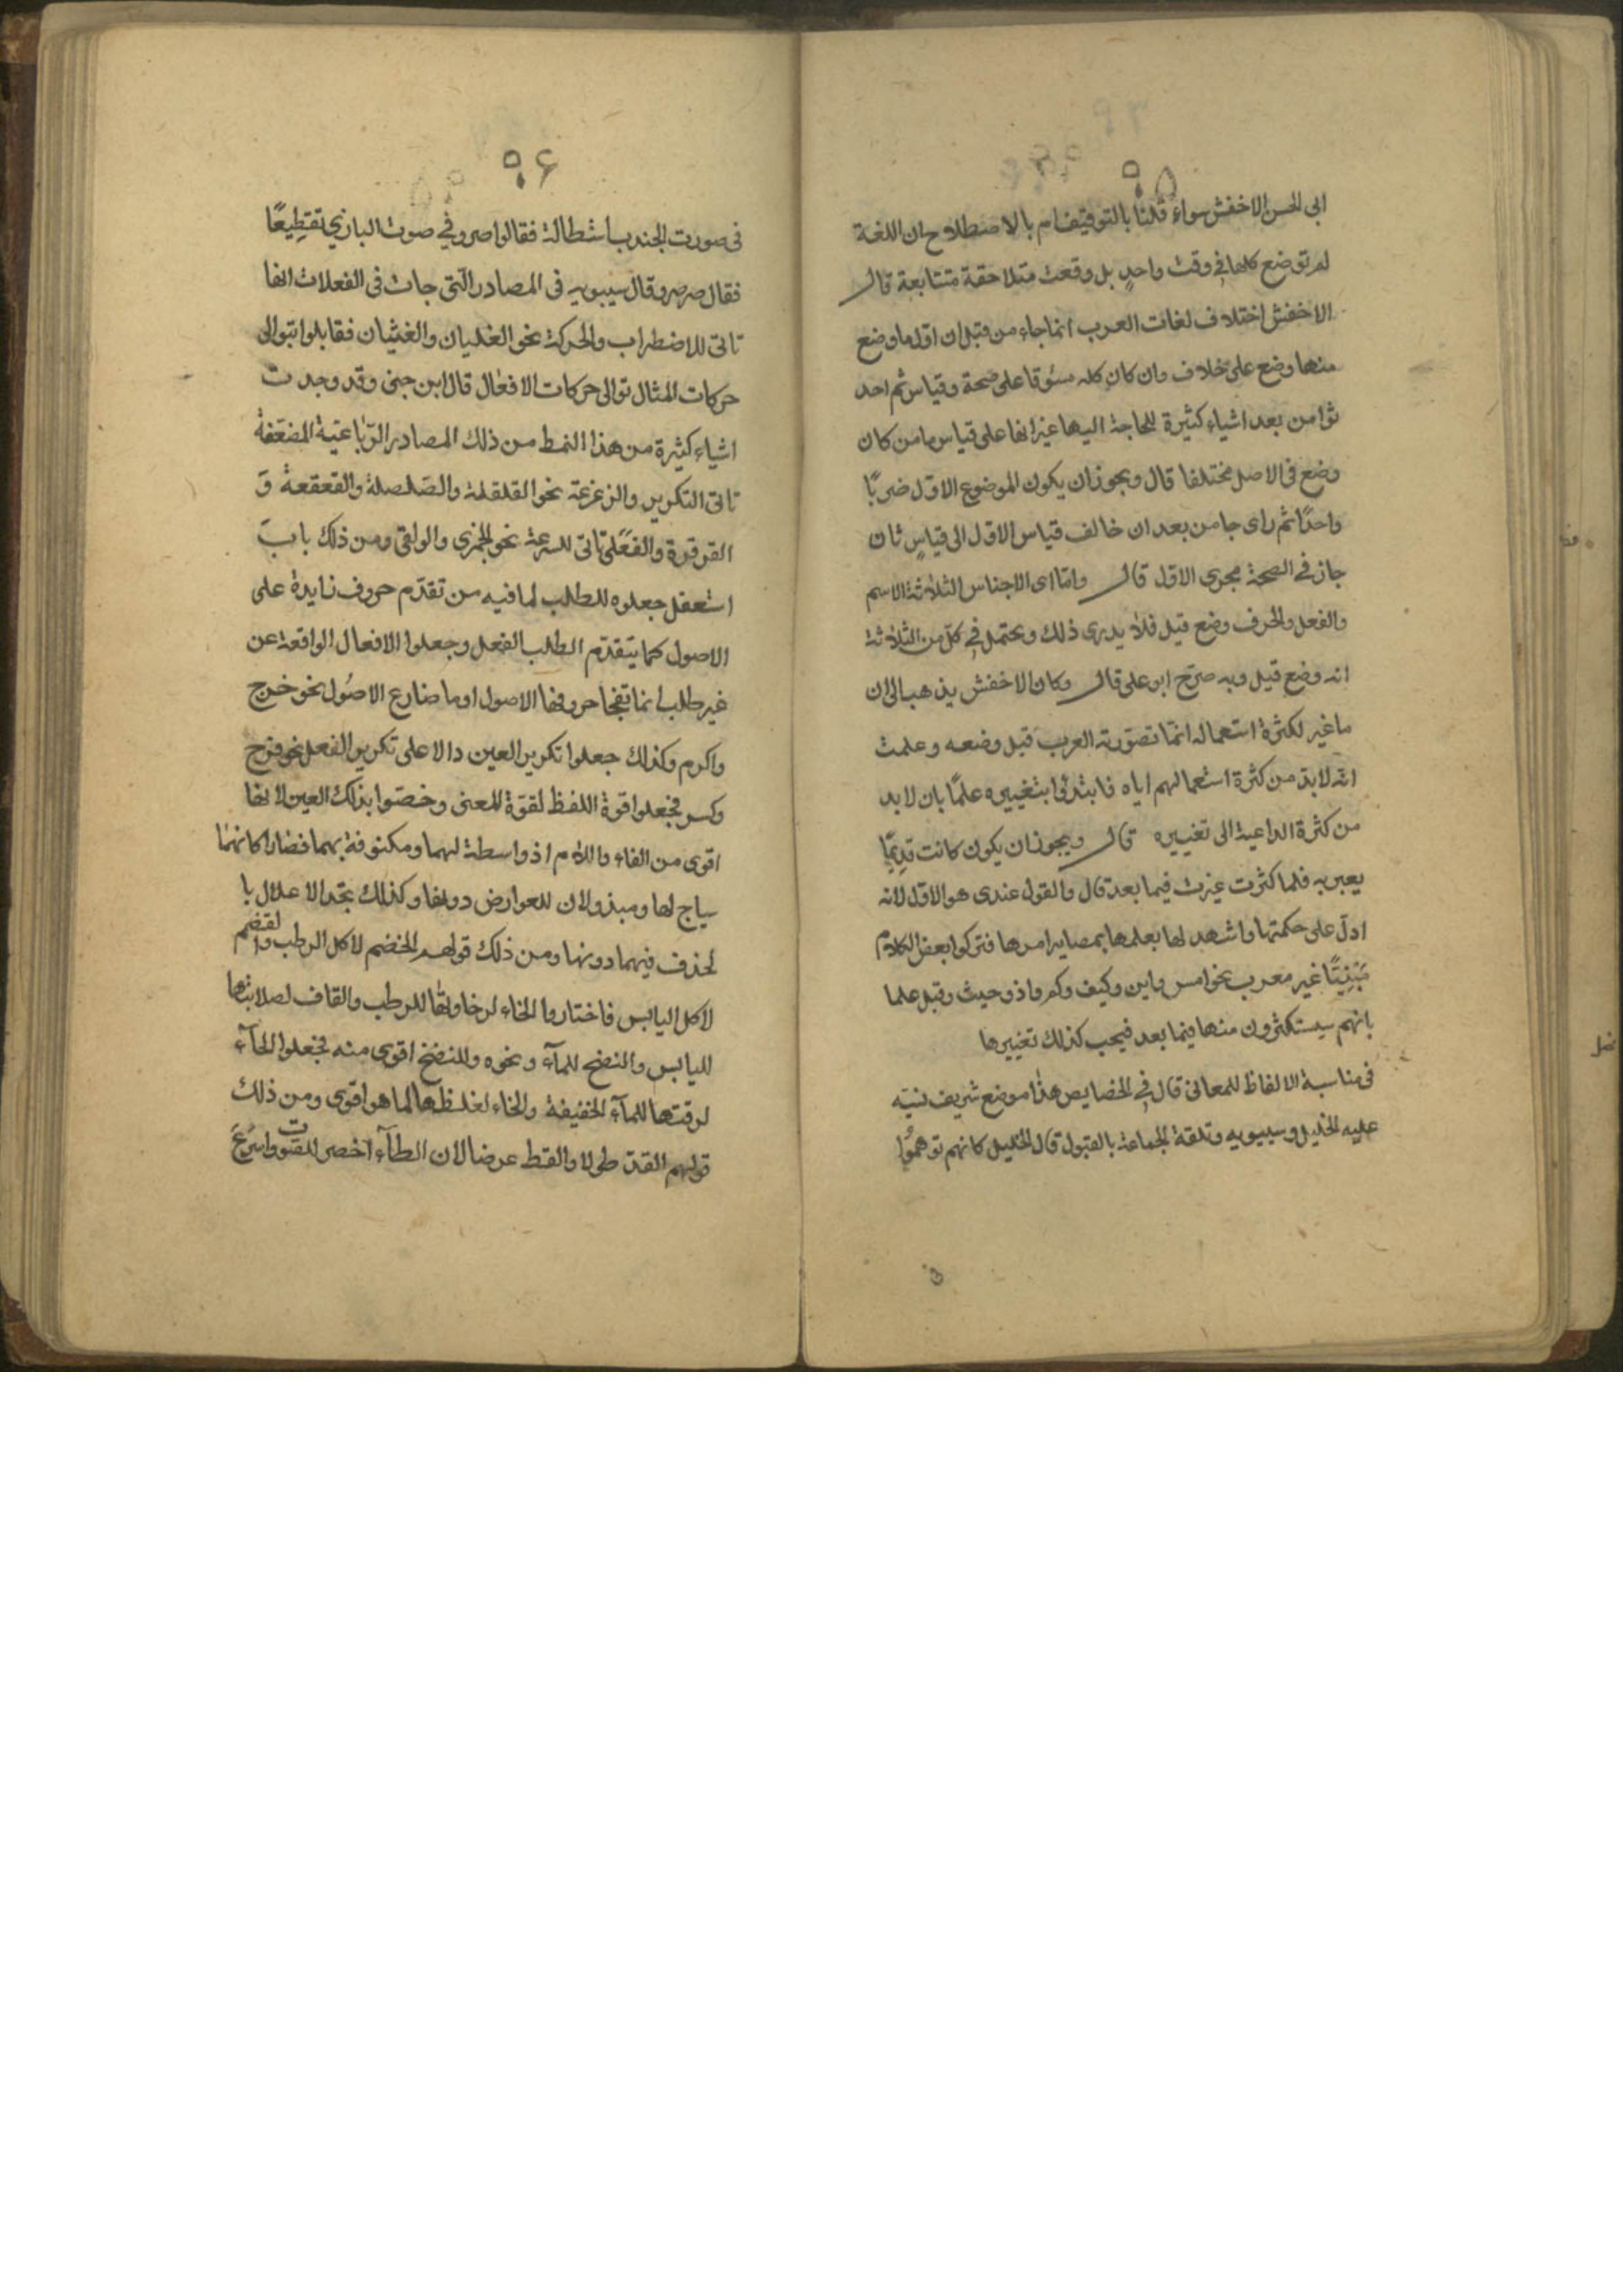 ٩٥
ابى الحسن الاخفش سواء قلنا بالتوقيف ام بالاصطلاح ان اللغة
لم توضع كلها فى وقت واحدٍ بل وقعت متلاحقة متتابعة قال
الاخفش اختلاف لغات العرب انما جاء من قبل ان اول ما وضع
منها وضع على خلاف وان كان كله مسوقا على صحة وقياس ثم احد
ثوا من بعد اشياء كثيرة للحاجة اليها غير انها على قياس ما من كان
وضع فى الاصل مختلفا قال ويجوز ان يكون الموضوع الاول ضربًا
واحدًا ثم راى جا من بعد ان خالف قياس الاول الى قياسٍ ثان
جاز فى الصحة مجرى الاول قال وامّا اى الاجناس الثلاثة الاسم
والفعل والحرف وضع قبل فلا يدرى ذلك ويحتمل فى كلّ من الثلاثة
انه وضع قبل وبه صرّح ابو على قال وكان الاخفش يذهب الى ان
ما غير لكثرة استعماله انمّا تصورته العرب قبل وضعه وعلمت
انّه لابدّ من كثرة استعمالهم اياه فابتدئوا بتغييره علمًا بان لابد
من كثرة الداعية الى تغييره قال ويجوز ان يكون كانت قديمًا
يعبر به فلما كثرت غيرت فيما بعد قال والقول عندى هو الاول لانه
ادلّ على حكمتها واشهد لها بعلمها بمصاير امرها فتركوا بعض الكلام
مَبْنِيًّا غير معرب نحو امس واين وكيف وكم واذ وحيث وقبل علما
بانهم سيستكثرون منها فيما بعد فيجب كذلك تغييرها
فى مناسبة الالفاظ للمعانى قال فى الخصايص هذا موضع شريف نبّه
عليه الخليل وسيبويه وتلقة الجماعة بالقبول قال الخليل كانهم توهمُوا
٩٦
فى صورت الجندب استطالة فقالوا صر وفى صوت البازى تقطِيعًا
فقال صرصر وقال سيبويه فى المصادر الّتى جات فى الفعلات انها
تاتى للاضطراب والحركة نحو الغليان والغثيان فقابلوا بتوالى
حركات المثال توالى حركات الافعال قال ابن جنى وقد وجدت
اشياء كثيرة من هذا النمط من ذلك المصادر الرّباعية المضعّفة
تاتى التكرير والزعزعة نحو القلقلة والصّلصلة والقعقعة وَ
القرقرة والفعَلى تاتى للسرعة نحو الجمزى والولقى ومن ذلك باب
استعفل جعلوه للطلب لما فيه من تقدّم حروف زايدة على
الاصول كما يتقدّم الطلب الفعل وجعلوا الافعال الواقعة عن
غير طلب انما تفجا حروفها الاصول او ما ضارع الاصُول نحو خرج
واكرم وكذلك جعلوا تكرير العين دالا على تكرير الفعل نحو فرح
وكسر فجعلوا قوة اللفظ لقوّة المعنى وخصّوا بذلك العين لانها
اقوى من الفاء واللام اذ واسطة لهما ومكنوفة بهما فضارا كانهما
سياج لها ومبذولان للعوارض دونها وكذلك تجد الاعلال با
لحذف فيهما دونها ومن ذلك قولهم الخضم لاكل الرطب والقضم
لاكل اليابس فاختاروا الخاء لرخاوتها للرطب والقاف لصلابتها
لليابس والنضح للمآء ونحوه وللنضخ اقوى منه فجعلوا الحآء
لرقتها للمآء الخفيفة والخاء لغلظها لما هو اقوى ومن ذلك
قولهم القدّ طولا والقط عرضا لان الطآء اخصر للصّوت واسرَعَ